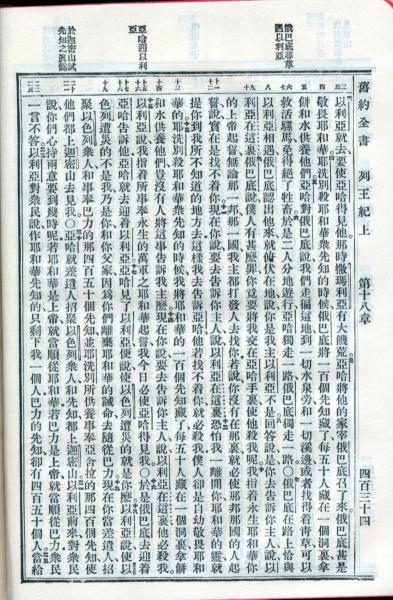 舊約全書 列王紀上 第十八章 四百三十四
俄巴底尋草
遇以利亞
亞哈遇以利
亞
於迦密山試
先知之真偽
以利亞就去要使亞哈得見他那時撒瑪利亞有大饑荒亞哈將他的家宰俄巴底召了來俄巴底甚是
敬畏耶和華耶洗別殺耶和華衆先知的時候俄巴底將一百個先知藏了每五十人藏在一個洞裏拿
餅和水供養他們亞哈對俄巴底說我們走徧這地到一切水泉旁和一切溪邊或者找得着青草可以
救活騾馬免得絕了牲畜於是二人分地遊行亞哈獨走一路俄巴底獨走一路○俄巴底在路上恰與
以利亞相遇俄巴底認出他來就俯伏在地說你是我主以利亞不是回答說是你去告訴你主人說以
利亞在這裏俄巴底說僕人有甚麼罪你竟要將我交在亞哈手裏使他殺我呢我指着永生耶和華你
的上帝起誓無論那一邦那一國我主都打發人去找你若說你沒有在那裏就必使那邦那國的人起
誓說實在是找不着你現在你說要去告訴你主人說以利亞在這裏恐怕我一離開你耶和華的靈就
提你到我所不知道的地方去這樣我去告訴亞哈他若找不着你就必殺我僕人卻是自幼敬畏耶和
華的耶洗別殺耶和華衆先知的時候我將耶和華的一百個先知藏了每五十人藏在一個洞裏拿餅
和水供養他們豈沒有人將這事告訴我主麼現在你說要去告訴你主人說以利亞在這裏他必殺我
以利亞說我指着所事奉永生的萬軍之耶和華起誓我今日必使亞哈得見我○於是俄巴底去迎着
亞哈告訴他亞哈就去迎着以利亞亞哈見了以利亞便說使以色列遭災的就是你麼以利亞說使以
色列遭災的不是我乃是你和你父家因爲你們離棄耶和華的誡命去隨從巴力現在你當差遣人招
聚以色列衆人和事奉巴力的那四百五十個先知並耶洗別所供養事奉亞舍拉的那四百個先知使
他們都上迦密山去見我○亞哈就差遣人招聚以色列衆人和先知都上迦密山以利亞前來對衆民
說你們心持兩意要到幾時呢若耶和華是上帝就當順從耶和華若巴力是上帝就當順從巴力衆民
一言不答以利亞對衆民說作耶和華先知的只剩下我一個人巴力的先知卻有四百五十個人當給